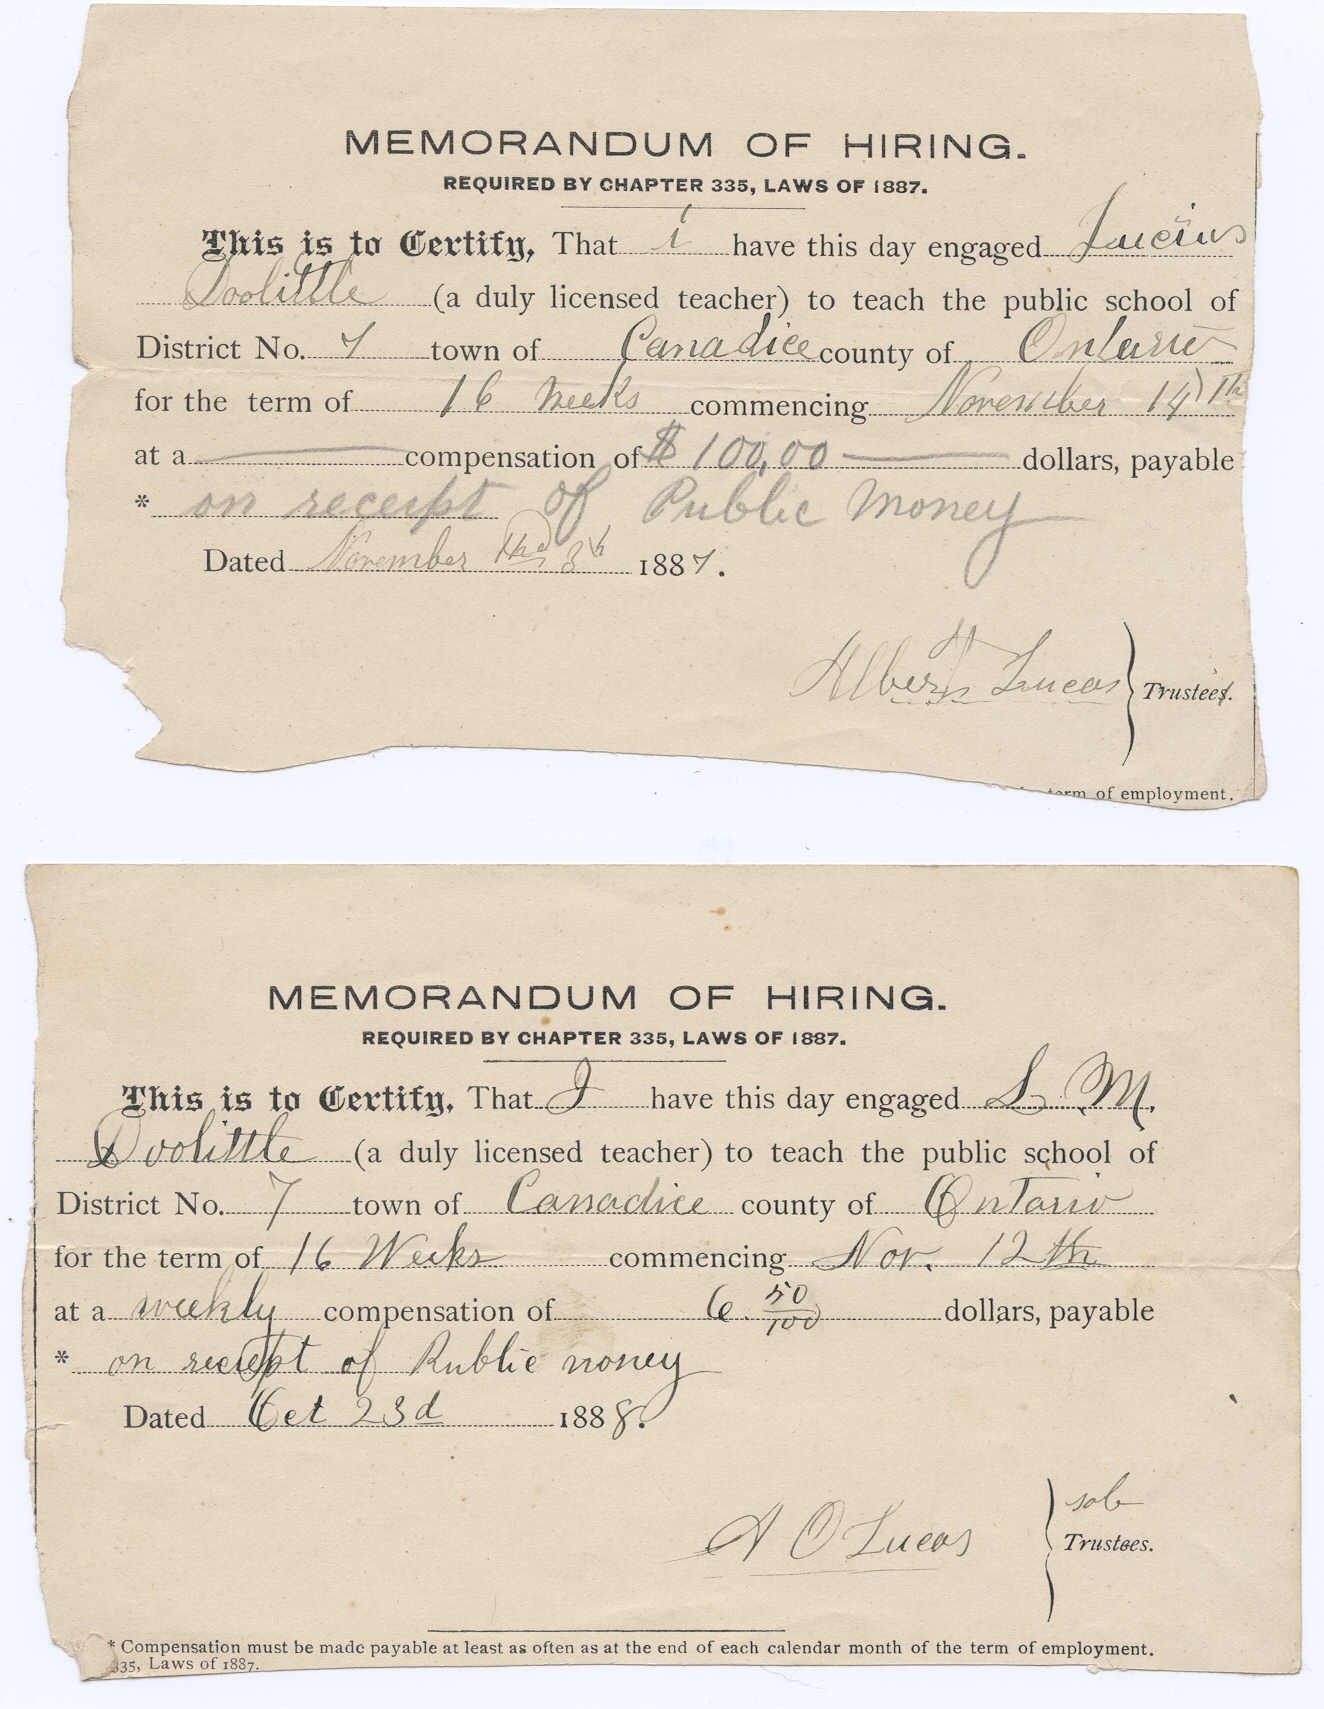 MEMORANDUM OF HIRING.
REQUIRED BY CHAPTER 335, LAWS OF 1887.
This is to Certify, That i have this day engaged Lucius
Doolittle (a duly licensed teacher) to teach the public school of
District No. 7 town of Canadice county of Ontario
for the term of 16 weeks commencing November 14th
at a compensation of $100,00 dollars, payable
* on receipt of Public Money
Dated November the 8th 1887.
Albert Lucas Trustee.
term of employment.
MEMORANDUM OF HIRING.
REQUIRED BY CHAPTER 335, LAWS OF 1887.
This is to Certify, That I have this day engaged L M.
Doolittle (a duly licensed teacher) to teach the public school of
District No. 7 town of Canadice county of Ontario
for the term of 16 Weeks commencing Nov. 12th
at a weekly compensation of 6. 50/100 dollars, payable
* on receipt of Public money
Dated Oct 23d 1888.
sole
A O Lucas Trustees.
* Compensation must be made payable at least as often as at the end of each calendar month of the term of employment.
335, Laws of 1887.